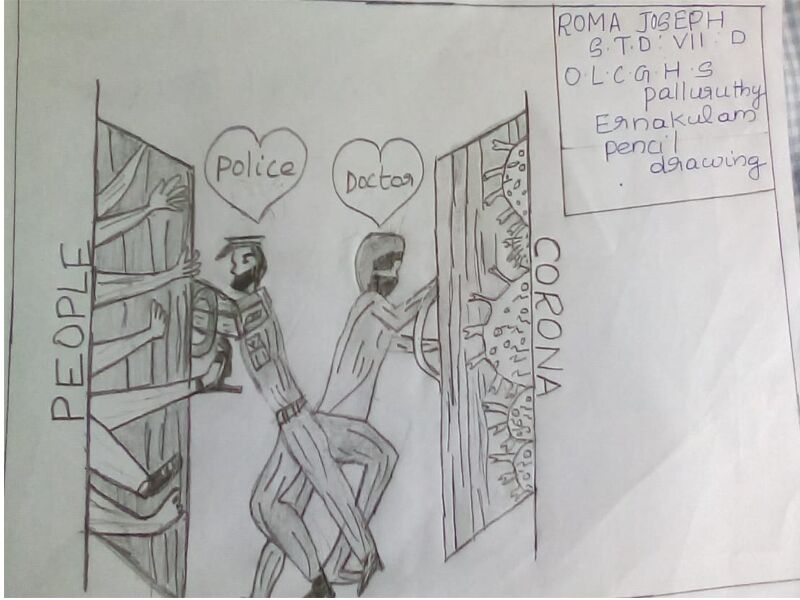 ROMA JOSEPH
S.T.D: VII: D
O.L.C.G.H.S
palluruthy
Ernakulam
pencil
drawing
police
Doctor
PEOPLE
CORONA